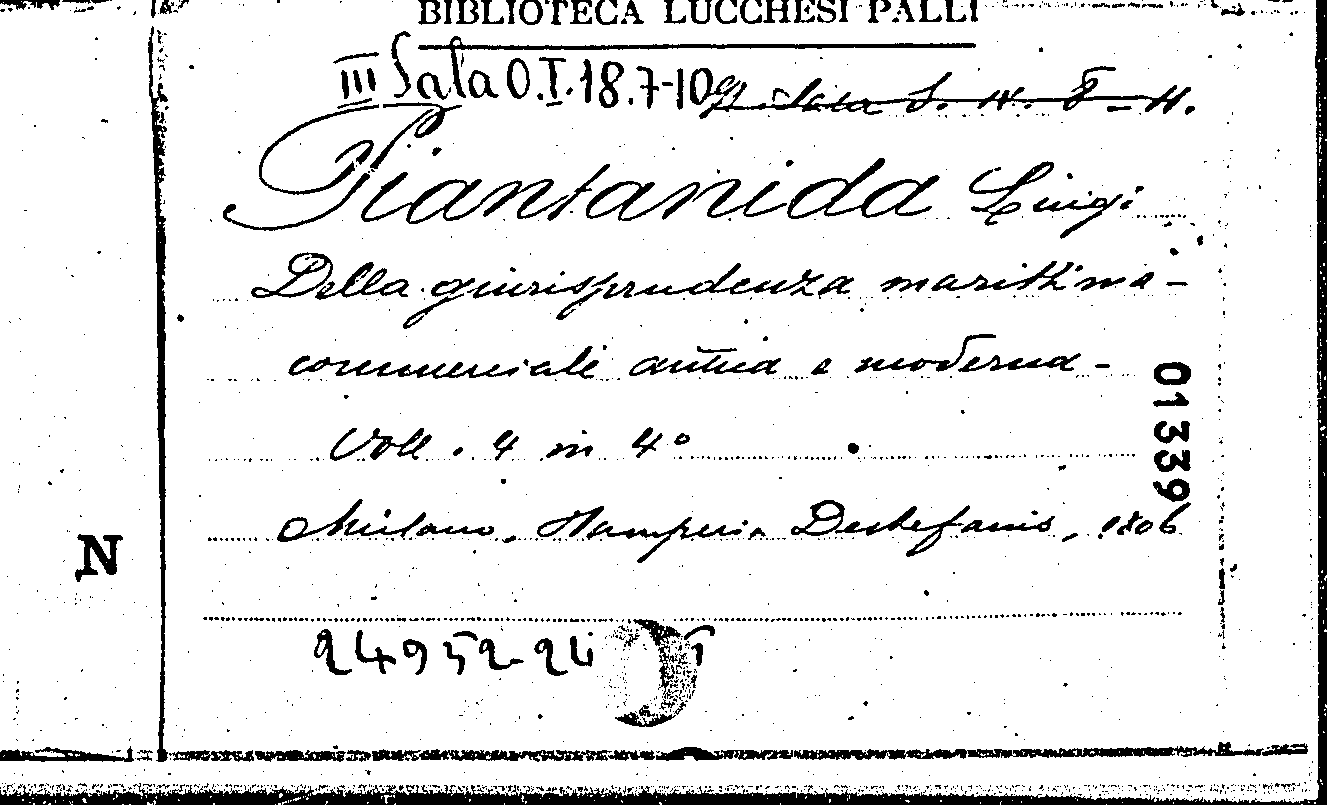 BIBLIOTECA LUCCHESI PALLI
III Sala O.I.18.7-10
Piantanida Luigi
Della giurisprudenza marittima-
commerciale antica e moderna -
Voll. 4 in 4°
01339
Milano, Stamperia Destefanis, 1806
N
24952-24